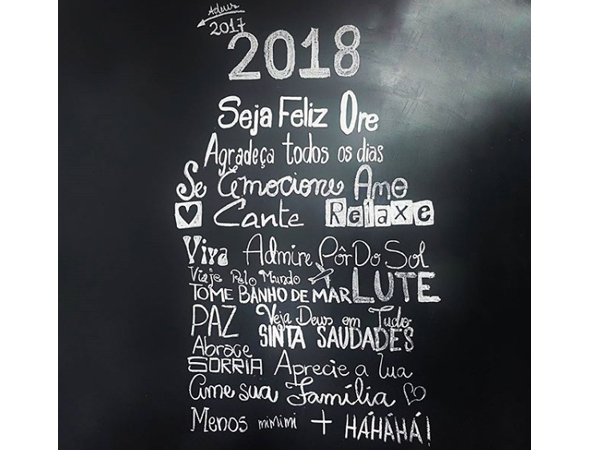 Adeus
2017
2018
Seja Feliz Ore
Agradeça todos os dias
Se Emocione Ame
Cante Relaxe
Viva Admire Pôr Do Sol
Viaje Pelo Mundo
TOME BANHO DE MAR LUTE
PAZ Veja Deus em Tudo
SINTA SAUDADES
Abrace
SORRIA Aprecie a lua
Ame sua Família
Menos mimimi + HÁHÁHÁ!